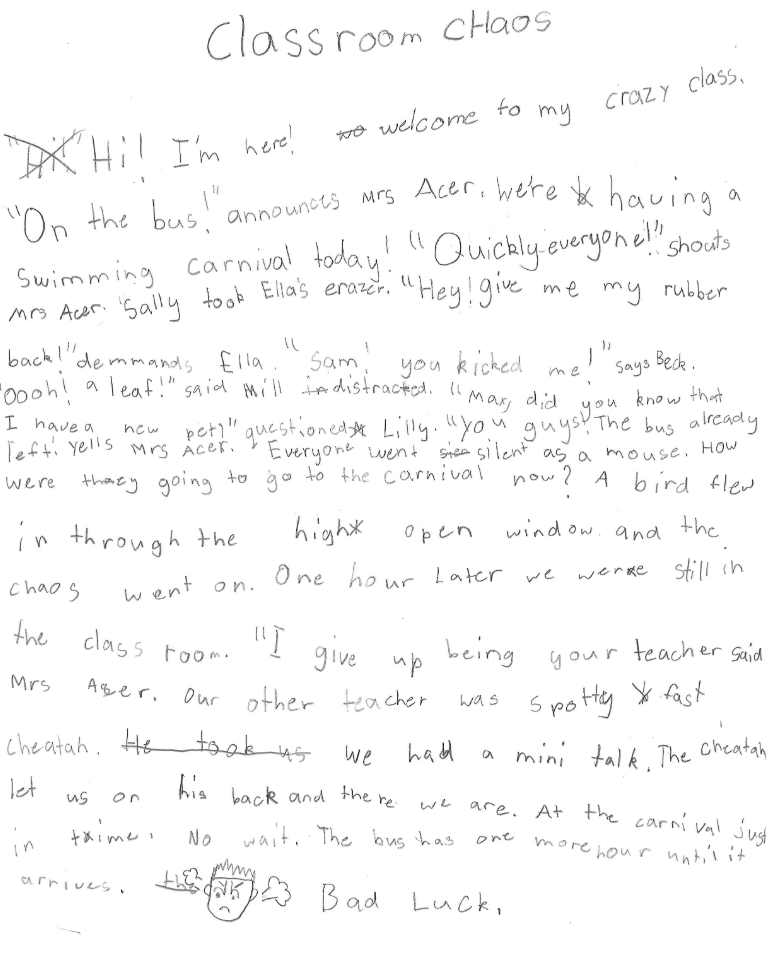 Classroom CHaos
Hi! I'm here! welcome to my crazy class.
"On the bus!" announces Mrs Acer. We're having a
swimming carnival today! "Quickly everyone!" shouts
Mrs Acer. Sally took Ella's erazer. "Hey! give me my rubber
back!" demmands Ella. "Sam! you kicked me!" says Beck.
"Oooh! a leaf!" said Mill distracted. "Max, did you know that
I have a new pet?" questioned Lilly. "You guys! The bus already
left! Yells Mrs Acer. Everyone went silent as a mouse. How
were they going to go to the carnival now? A bird flew
in through the high open window and the
chaos went on. One hour Later we were still in
the class room. "I give up being your teacher said
Mrs Acer. Our other teacher was spotty fast
cheatah. He took us we had a mini talk. The cheatah
let us on his back and there we are. At the carnival just
in time. No wait. The bus has one more hour until it
arrives. Bad Luck.